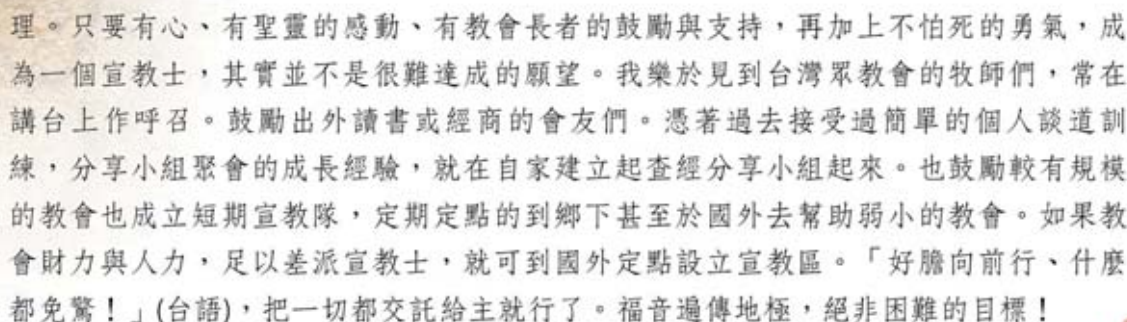 理。只要有心、有聖靈的感動、有教會長者的鼓勵與支持，再加上不怕死的勇氣，成
為一個宣教士，其實並不是很難達成的願望。我樂於見到台灣眾教會的牧師們，常在
講台上作呼召。鼓勵出外讀書或經商的會友們。憑著過去接受過簡單的個人談道訓
練，分享小組聚會的成長經驗，就在自家建立起查經分享小組起來。也鼓勵較有規模
的教會也成立短期宣教隊，定期定點的到鄉下甚至於國外去幫助弱小的教會。如果教
會財力與人力，足以差派宣教士，就可到國外定點設立宣教區。「好膽向前行、什麼
都免驚！」(台語)，把一切都交託給主就行了。福音遍傳地極，絕非困難的目標！